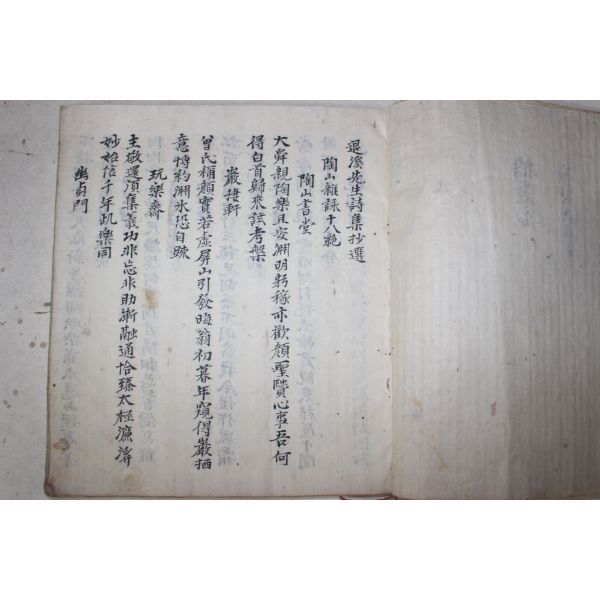 退溪先生詩集抄選
陶山雜詠十八絶
陶山書堂
大舜親陶樂且安淵明躬稼亦歡顔聖賢心事吾何
得白首歸來試考槃
巖棲軒
曾氏稱顔實若虛屛山引發晦翁初暮年窺得巖栖
意博約淵氷恐自踈
玩樂齋
主敬還須集義功非忘非助漸融通恰臻太極濂溪
妙始信千年此樂同
幽貞門